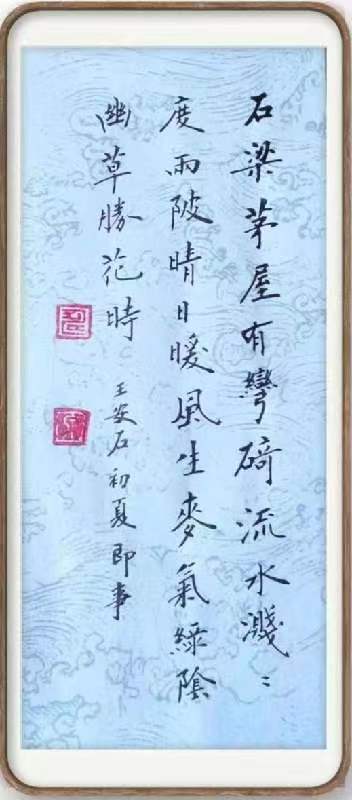 石梁茅屋有彎碕流水濺〻
度兩陂晴日暖風生麥氣綠陰
幽草勝花時
王安石初夏即事